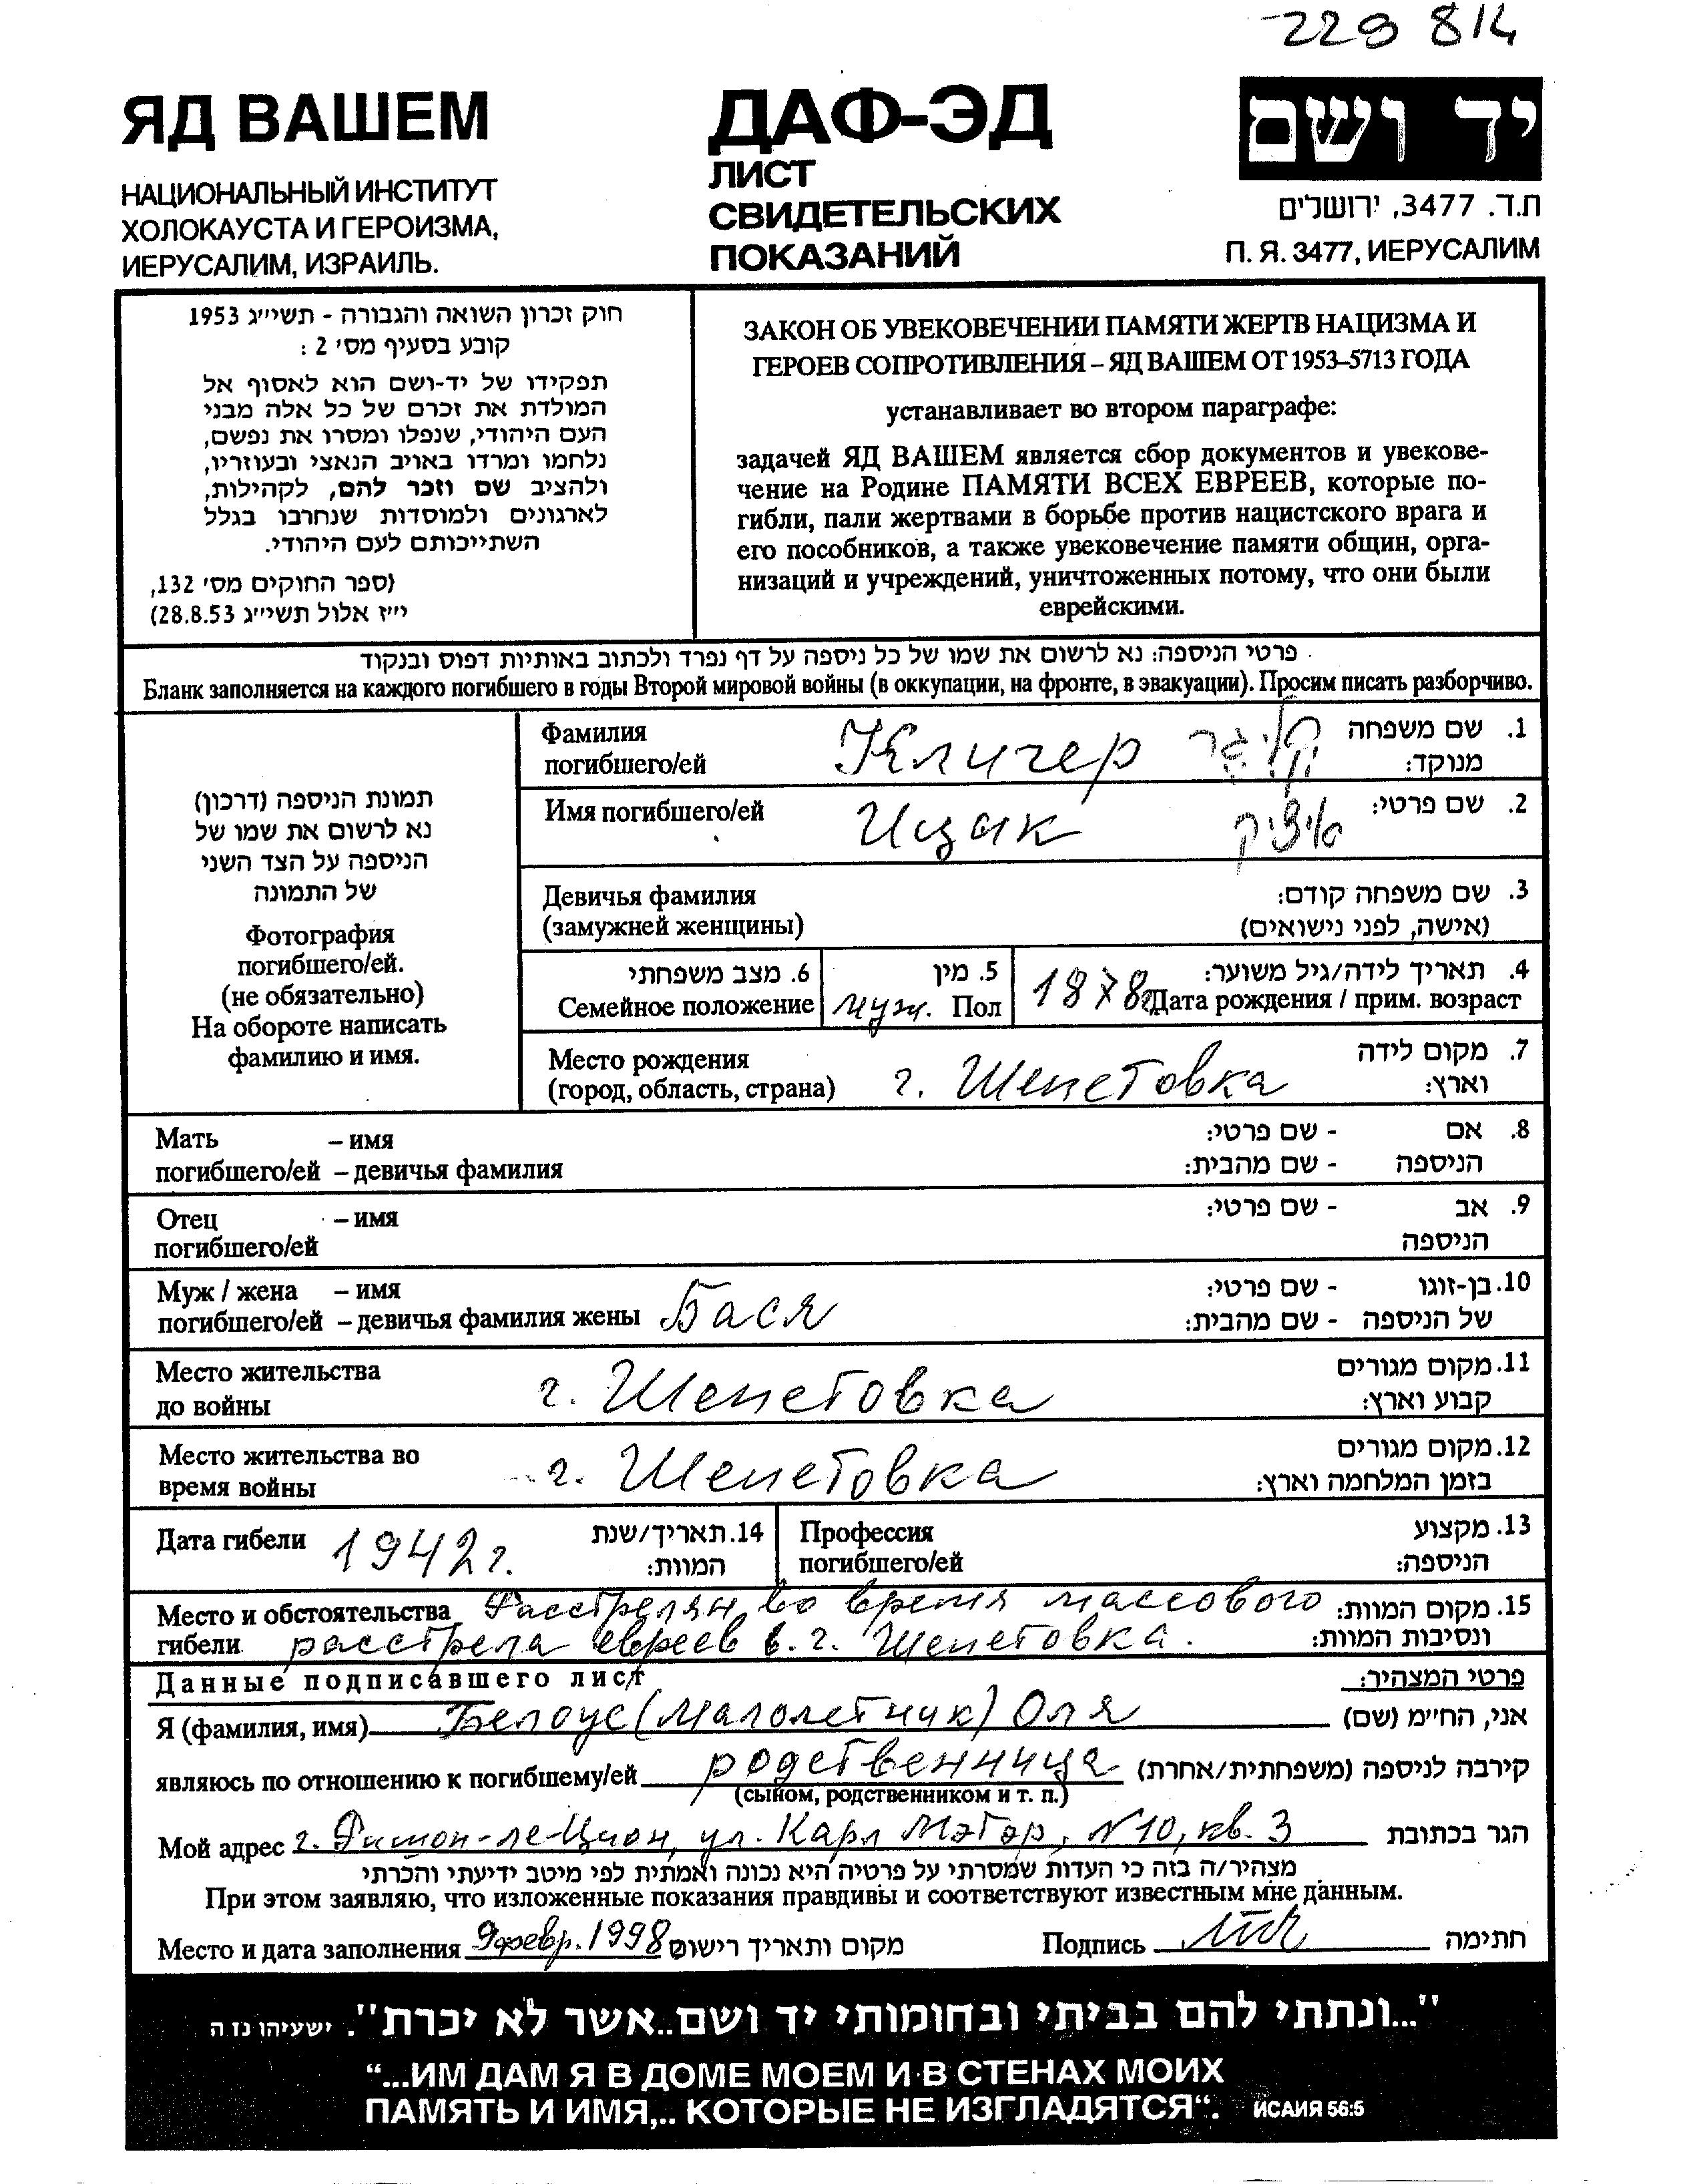 229 814
ЯД ВАШЕМ
НАЦИОНАЛЬНЫЙ ИНСТИТУТ
ХОЛОКАУСТА И ГЕРОИЗМА,
ИЕРУСАЛИМ, ИЗРАИЛЬ.
ДАФ-ЭД
ЛИСТ
СВИДЕТЕЛЬСКИХ
ПОКАЗАНИЙ
יד ושם
ת.ד. 3477, ירושלים
П. Я. 3477, ИЕРУСАЛИМ
חוק זכרון השואה והגבורה - תשי״ג 1953
קובע בסעיף מס׳ 2 :
תפקידו של יד-ושם הוא לאסוף אל
המולדת את זכרם של כל אלה מבני
העם היהודי, שנפלו ומסרו את נפשם,
נלחמו ומרדו באויב הנאצי ובעוזריו,
ולהציב שם וזכר להם, לקהילות,
לארגונים ולמוסדות שנחרבו בגלל
השתייכותם לעם היהודי.
(ספר החוקים מס׳ 132,
י״ז אלול תשי״ג 28.8.53)
ЗАКОН ОБ УВЕКОВЕЧЕНИИ ПАМЯТИ ЖЕРТВ НАЦИЗМА И
ГЕРОЕВ СОПРОТИВЛЕНИЯ – ЯД ВАШЕМ ОТ 1953–5713 ГОДА
устанавливает во втором параграфе:
задачей ЯД ВАШЕМ является сбор документов и увекове-
чение на Родине ПАМЯТИ ВСЕХ ЕВРЕЕВ, которые по-
гибли, пали жертвами в борьбе против нацистского врага и
его пособников, а также увековечение памяти общин, орга-
низаций и учреждений, уничтоженных потому, что они были
еврейскими.
פרטי הניספה: נא לרשום את שמו של כל ניספה על דף נפרד ולכתוב באותיות דפוס ובנקוד
Бланк заполняется на каждого погибшего в годы Второй мировой войны (в оккупации, на фронте, в эвакуации). Просим писать разборчиво.
תמונת הניספה (דרכון)
נא לרשום את שמו של
הניספה על הצד השני
של התמונה
Фотография
погибшего/ей.
(не обязательно)
На обороте написать
фамилию и имя.
Фамилия Клигер קליגר 1. שם משפחה
погибшего/ей מנוקד:
Имя погибшего/ей Ицак איציק 2. שם פרטי:
Девичья фамилия 3. שם משפחה קודם:
(замужней женщины) (אישה, לפני נישואים)
6. מצב משפחתי 5. מין 4. תאריך לידה/גיל משוער:
Семейное положение муж. Пол 1878г. Дата рождения / прим. возраст
Место рождения 7. מקום לידה
(город, область, страна) г. Шепетовка וארץ:
Мать – имя 8. אם - שם פרטי:
погибшего/ей – девичья фамилия הניספה - שם מהבית:
Отец – имя 9. אב - שם פרטי:
погибшего/ей הניספה
Муж / жена – имя 10. בן-זוגו - שם פרטי:
погибшего/ей – девичья фамилия жены Бася של הניספה - שם מהבית:
Место жительства 11. מקום מגורים
до войны г. Шепетовка קבוע וארץ:
Место жительства во 12. מקום מגורים
время войны г. Шепетовка בזמן המלחמה וארץ:
Дата гибели 1942г. 14. תאריך/שנת Профессия 13. מקצוע
המוות: погибшего/ей הניספה:
Место и обстоятельства Расстрелян во время массового 15. מקום המוות:
гибели расстрела евреев в. г. Шепетовка. ונסיבות המוות:
Данные подписавшего лист פרטי המצהיר:
Я (фамилия, имя) Белоус (Малолетник) Оля אני, החי״מ (שם)
являюсь по отношению к погибшему/ей родственница קירבה לניספה (משפחתית/אחרת)
(сыном, родственником и т. п.)
Мой адрес г. Ришон-ле-Цион, ул. Карл Нэтэр, N10, кв. 3 הגר בכתובת
מצהיר/ה בזה כי העדות שמסרתי על פרטיה היא נכונה ואמתית לפי מיטב ידיעתי והכרתי
При этом заявляю, что изложенные показания правдивы и соответствуют известным мне данным.
Место и дата заполнения 9 февр. 1998 מקום ותאריך רישום Подпись חתימה
"...ונתתי להם בביתי ובחומותי יד ושם..אשר לא יכרת". ישעיהו נז ה
“...ИМ ДАМ Я В ДОМЕ МОЕМ И В СТЕНАХ МОИХ
ПАМЯТЬ И ИМЯ,.. КОТОРЫЕ НЕ ИЗГЛАДЯТСЯ“. ИСАИЯ 56:5